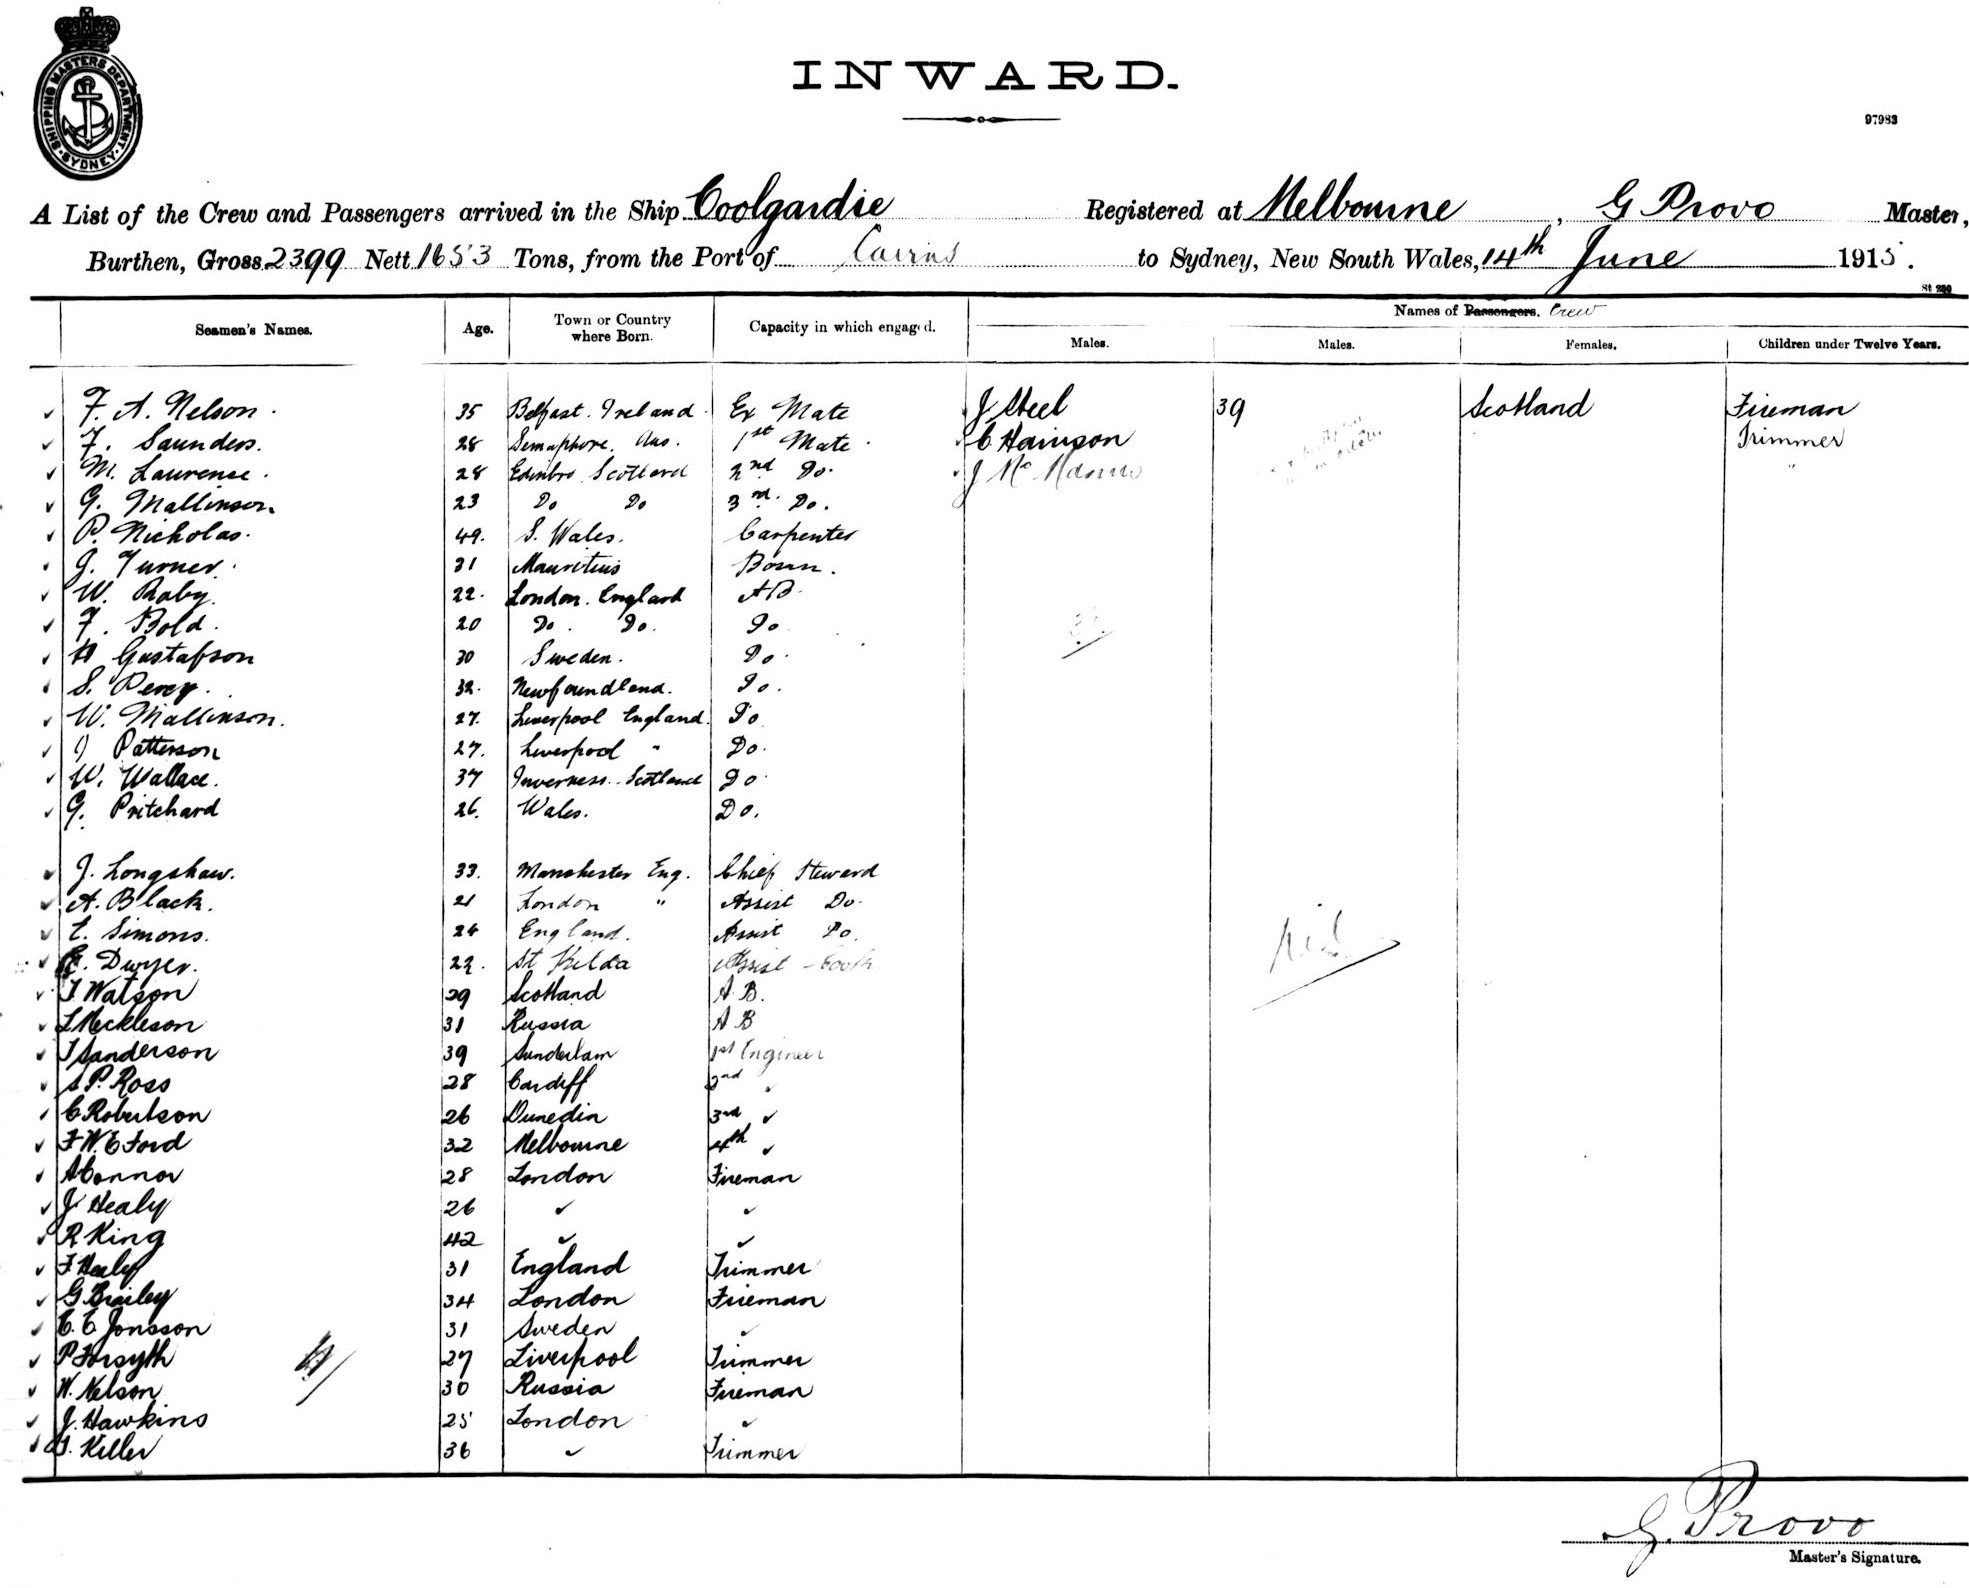 SHIPPING MASTERS DEPARTMENT
SYDNEY
INWARD.
97983
A List of the Crew and Passengers arrived in the Ship Coolgardie Registered at Melbourne, G Provo Master,
Burthen, Gross 2399 Nett 1653 Tons, from the Port of Cairns to Sydney, New South Wales, 14th June 1915.
St 220
Seamen's Names. Age. Town or Country where Born. Capacity in which engaged. Names of Passengers. Crew
Males. Males. Females. Children under Twelve Years.
F. A. Nelson. 35 Belfast. Ireland. Ex Mate J Steel 39 Scotland Fireman
F. Saunders. 28 Semaphore, Aus. 1st Mate. C Harrison Trimmer
M. Laurence. 28 Edinbro Scotland 2nd Do. J Mc Manus "
G. Mallinson. 23 Do Do 3rd. Do.
P. Nicholas. 49. S. Wales. Carpenter
J. Turner. 31 Mauritius Bosun.
W. Raby. 22. London. England AB.
F. Bold. 20 Do. Do. Do
H Gustafson 30 Sweden. Do.
S. Percy. 32. Newfoundland. Do.
W. Mallinson. 27. Liverpool England. Do
J Patterson 27. Liverpool " Do.
W. Wallace. 37 Inverness. Scotland Do
G. Pritchard 26. Wales. Do.
J. Longshaw. 33. Manchester Eng. Chief Steward
A. Black. 21 London " Assist Do.
E. Simons. 24 England. Assist Do.
E. Dwyer. 22. St Kilda Assist - Cook
T Watson 29 Scotland A.B.
L Meckleson 31 Russia A B
T Sanderson 39 Sunderlam 1st Engineer
A P. Ross 28 Cardiff 2nd "
C Robertson 26 Dunedin 3rd "
F W. E Ford 32 Melbourne 4th "
A Connor 28 London Fireman
J Healy 26 " "
R King 42 " "
F Healy 31 England Trimmer
G Brailey 34 London Fireman
C. E Jonsson 31 Sweden "
P Forsyth 27 Liverpool Trimmer
W. Nelson 30 Russia Fireman
J. Hawkins 25 London "
T. Killer 36 " Trimmer
G. Provo
Master's Signature.